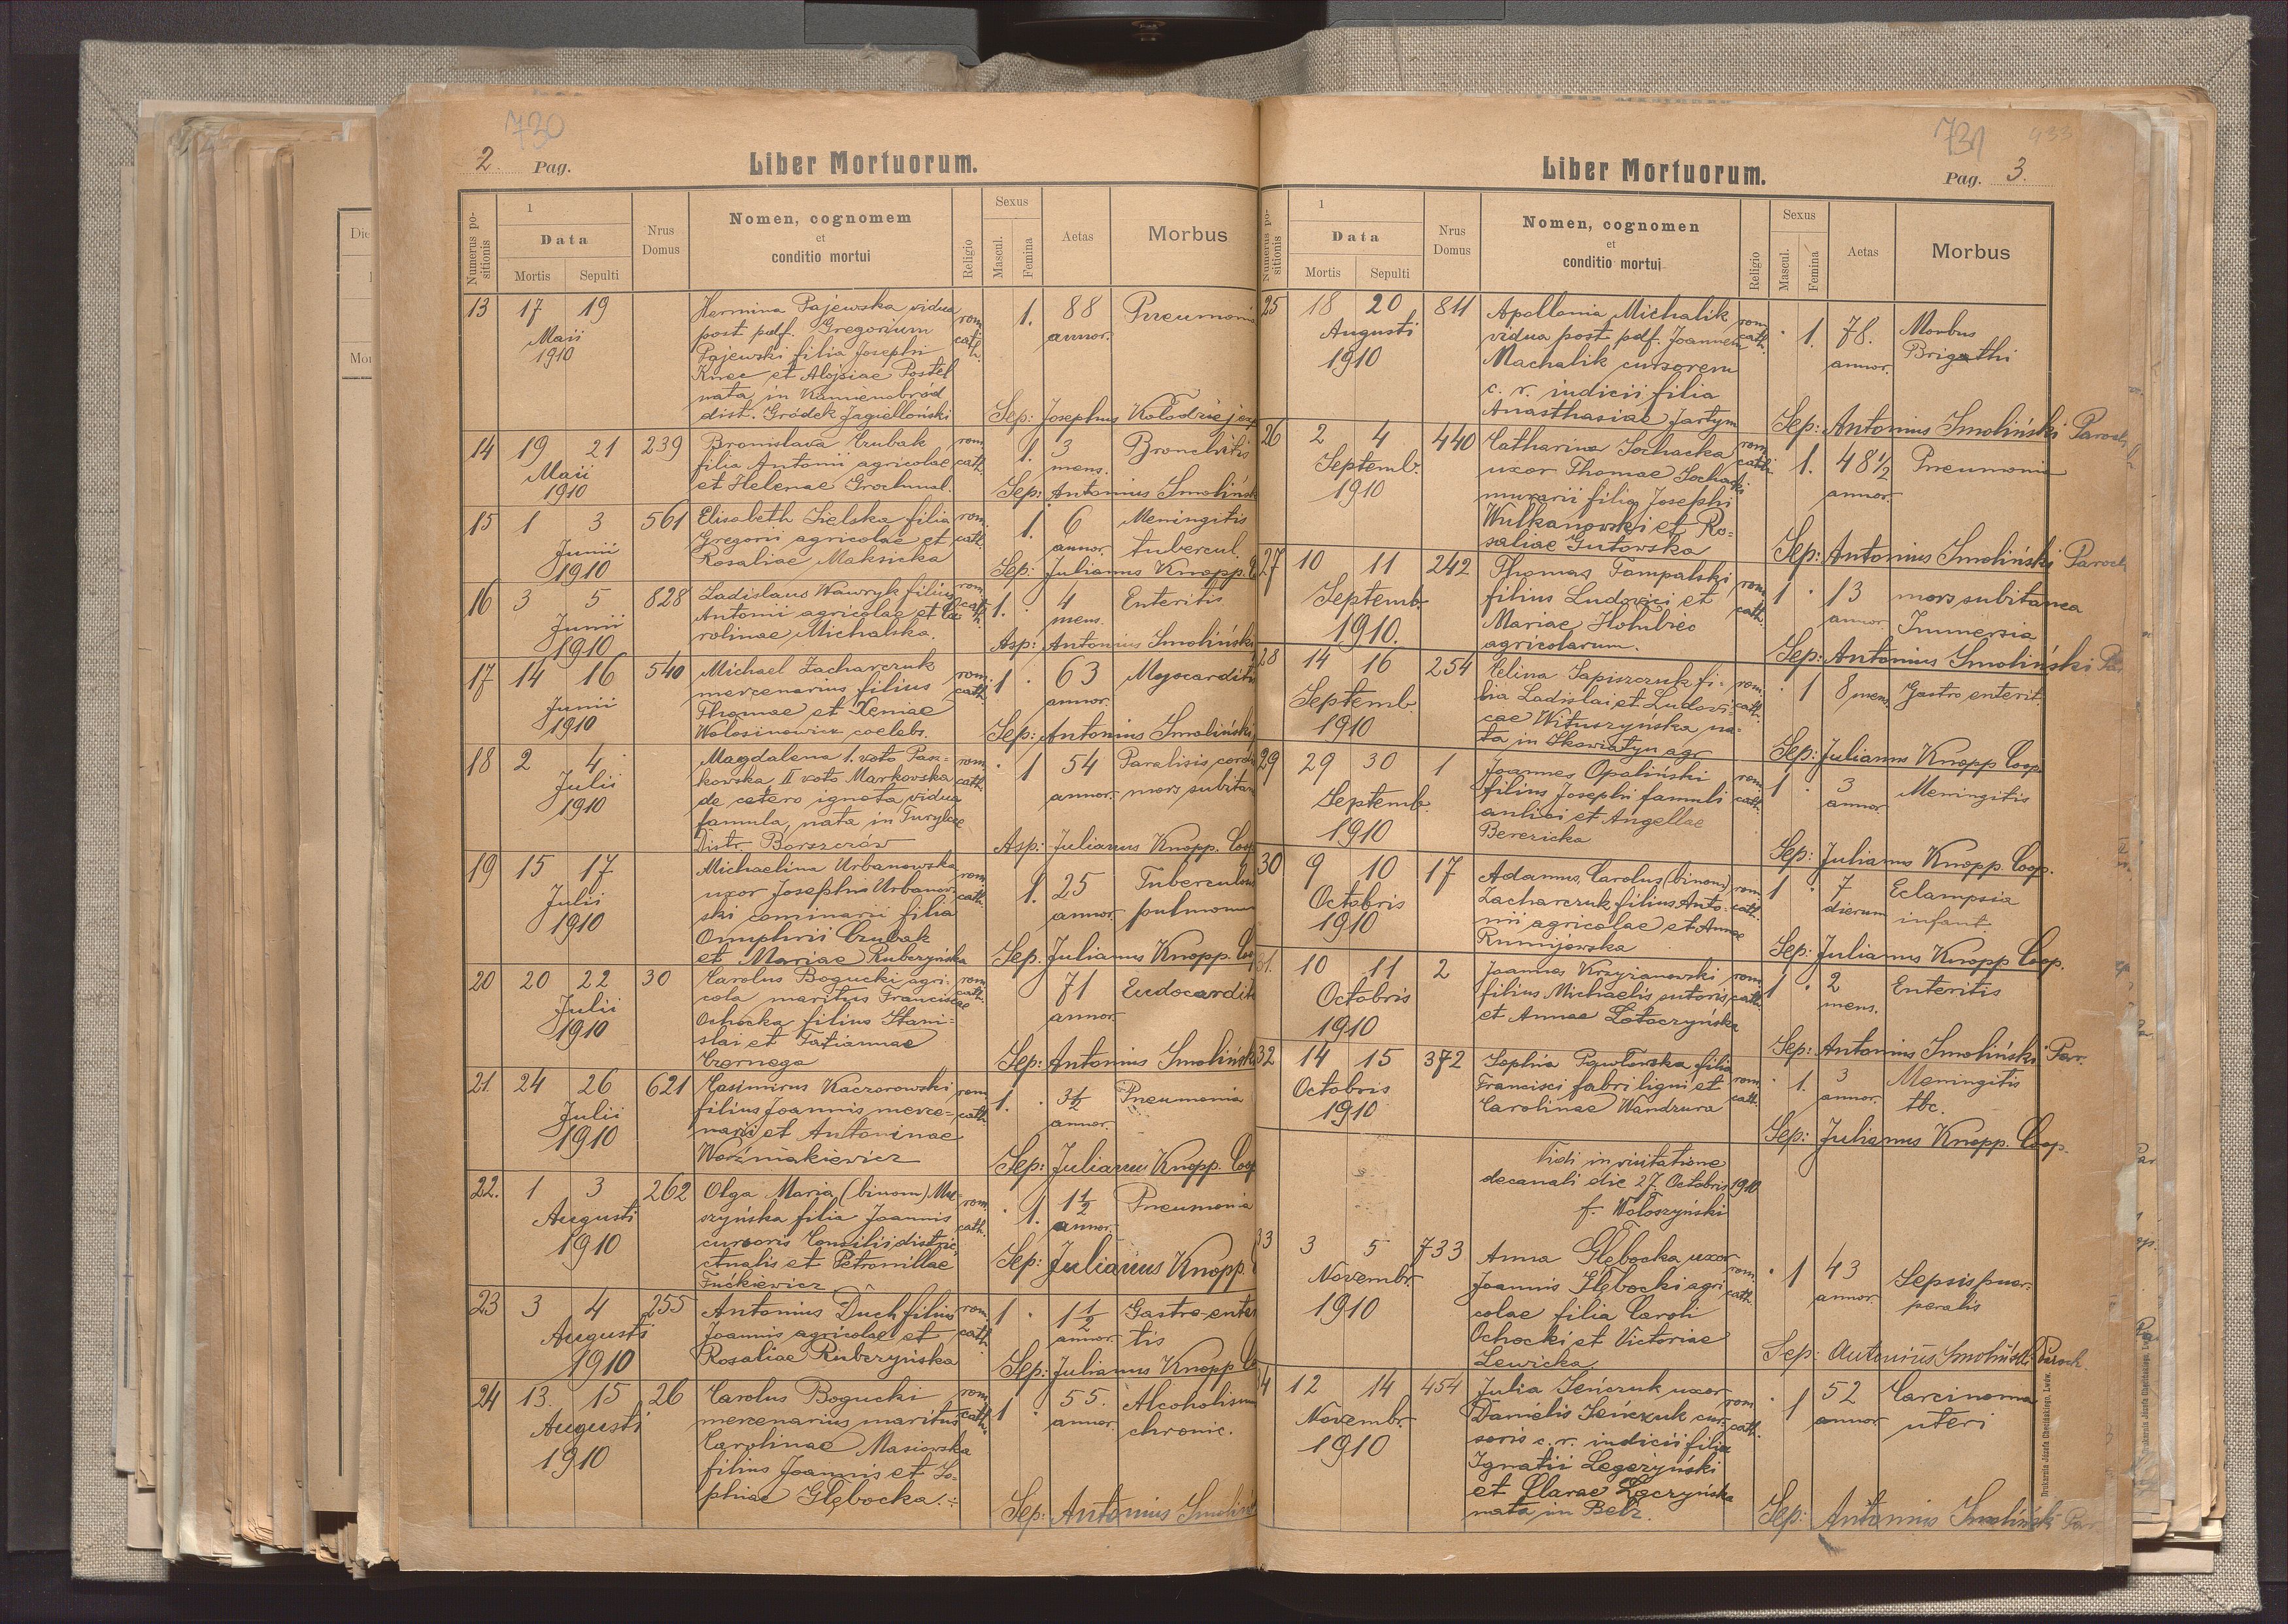 730
2. Pag. Liber Mortuorum.
Numerus positionis
1
Data
Mortis Sepulti
Nrus Domus
Nomen, cognomem
et
conditio mortui
Religio
Sexus
Mascul. Femina
Aetas
Morbus
13 17 19 Hermina Pajewska vidua rom. 1. 88 Pneumonia
Maii post pdf. Gregorium cath. annor.
1910 Pajewski filia Josephi
Knec et Alojsiae Postel
nata in Kamienobród
dist. Gródek Jagielloński Sep: Josephus Kołodziejczy
14 19 21 239 Bronislava Czubak rom. 1. 3 Bronchitis
Maii filia Antonii agricolae cath. mens.
1910 et Helenae Grochmal. Sep: Antonius Smolińsk
15 1 3 561 Elisabeth Sielska filia rom. 1. 6 Meningitis
Junii Gregorii agricolae et cath. annor. tubercul.
1910 Rosaliae Maksicka Sep: Julianus Knopp.
16 3 5 828 Ladislaus Wawryk filius rom. 1. 4 Enteritis
Junii Antonii agricolae et Ca- cath. mens.
1910 rolinae Michalska. Asp: Antonius Smoliński
17 14 16 540 Michael Zacharczuk rom. 1 63 Myocarditis
Junii mercenarius filius cath. annor.
1910 Thomae et Xeniae
Wolosinowicz coelebs. Sep: Antonius Smoliński
18 2 4 Magdalena 1. voto Pan= rom. 1 54 Paralisis cordi
Julii kowska II voto Markovska cath. annor. mors subitan
1910 de cetero ignota vidua
famula, nata in Turylcze
Distr. Borszczów Asp: Julianus Knopp. Coop
19 15 17 Michaelina Urbanowska rom. 1. 25 Tuberculos
Julii uxor Josephi Urbanow- cath. annor. pulmonum
1910 ski caminarii filia
Omphrii Czubak
et Mariae Ruberzyńska Sep. Julianus Knopp. Coop
20 20 22 30 Carolus Bogucki agri- rom. 71 Endocardit
Julii cola maritus Franciscae cath. annor.
1910 Ochocka filius Stani=
slai et Tatiannae
Czornega Sep: Antonius Smolińsk
21. 24 26 621 Casimirus Kaczorowski rom. 1. 3½ Pneumonia
Julii filius Joannis merce= cath. annor.
1910 narii et Antoninae
Woźniakiewicz Sep: Julianus Knopp. Coop
22. 1 3 262 Olga Maria (binom) Mu- rom. 1. 1½ Pneumonia
Augusti szyńska filia Joannis cath. annor.
1910 cursoris Consilii distric-
ctualis et Petronillae
Fućkiewicz Sep: Julianus Knopp.
23 3 4 255 Antonius Duch filius rom. 1 1½ Gastro-enter
Augusti Joannis agricolae et cath. annor. tis
1910 Rosaliae Ruberzyńska Sep: Julianus Knopp
24 13. 15 26 Carolus Bogucki rom. 1 55. Alcoholism
Augusti mercenarius maritus cath. annor. chronic.
1910 Carolinae Masiowska
filius Joannis et So-
phiae Głębocka. Sep: Antonius Smoliń
731 433
Liber Mortuorum. Pag. 3.
Numerus positionis
1
Data
Mortis Sepulti
Nrus Domus
Nomen, cognomen
et
conditio mortui
Religio
Sexus
Mascul. Femina
Aetas
Morbus
25 18 20 811 Apollonia Michalik rom. 1. 78. Morbus
Augusti vidua post pdf. Joannem cath. annor. Brigathi
1910 Machalik cursorem
c. r. iudicii filia
Anasthasiae Jartym Sep: Antonius Smoliński Paroch
26 2 4 440 Catharina Sochacka rom. 1. 48½ Pneumonia
Septemb. uxor Thomae Sochacki cath. annor.
1910 murarii filia Josephi
Wulkanowski et Ro=
saliae Gutowska Sep: Antonius Smoliński Paroch
27 10 11 242 Thomas Tompalski rom. 1 13 mors subitanea
Septembr. filius Ludovici et cath. annor. Immersia
1910. Mariae Hołubiec
agricolarum. Sep: Antonius Smoliński Pa
28 14 16 254 Celina Sapiszczuk fi= rom. 1 8 mens. Gastro enterit.
Septemb. lia Ladislai et Ludovi= cath.
1910 cae Wituszyńska na=
ta in Skowiatyn agr Sep: Julianus Knopp Coop
29 29 30 1 Joannes Opaliński rom. 1 3 Meningitis
Septemb. filius Josephi famuli cath. annor.
1910 aulici et Angellae
Berezicka Sep: Julianus Knopp. Coop.
30 9 10 17 Adamus, Carolus (binom) rom. 1 7 Eclampsia
Octobris Zacharczuk filius Anto- cath. dierum infant.
1910 nii agricolae et Annae
Rumijowska Sep: Julianus Knopp Coop.
31. 10 11 2 Joannes Krzyżanowski rom. 1 2 Enteritis
Octobris filius Michaelis sutoris cath. mens.
1910 et Annae Łotoczyńska Sep: Antonius Smoliński Par.
32 14 15 372 Sophia Pawłowska filia rom. 1. 3 Meningitis
Octobris Francisci fabri ligni et cath. annor. tbc.
1910 Carolinae Wandzura Sep: Julianus Knopp. Coop.
Vidi in visitatione
decanali die 27. Octobris 1910
f. Wołoszyński
33 3 5 733 Anna Głębocka uxor rom. 1 43 Sepsis puer-
Novembr. Joannis Głębocki agri cath. annor. peralis
1910 colae filia Caroli
Ochocki et Victoriae
Lewicka Sep: Antonius Smoliński Paroch.
34 12 14 454 Julia Seńczuk uxor rom. 1 52 Carcinoma
Novembr. Danielis Seńczuk cur- cath. annor. uteri
1910 soris c. r. iudicii filia
Ignatii Legeżyński
et Clarae Łączyńska
nata in Bełz. Sep: Antonius Smoliński Par
Drukarnia Józefa Chęcińskiego, Lwów.